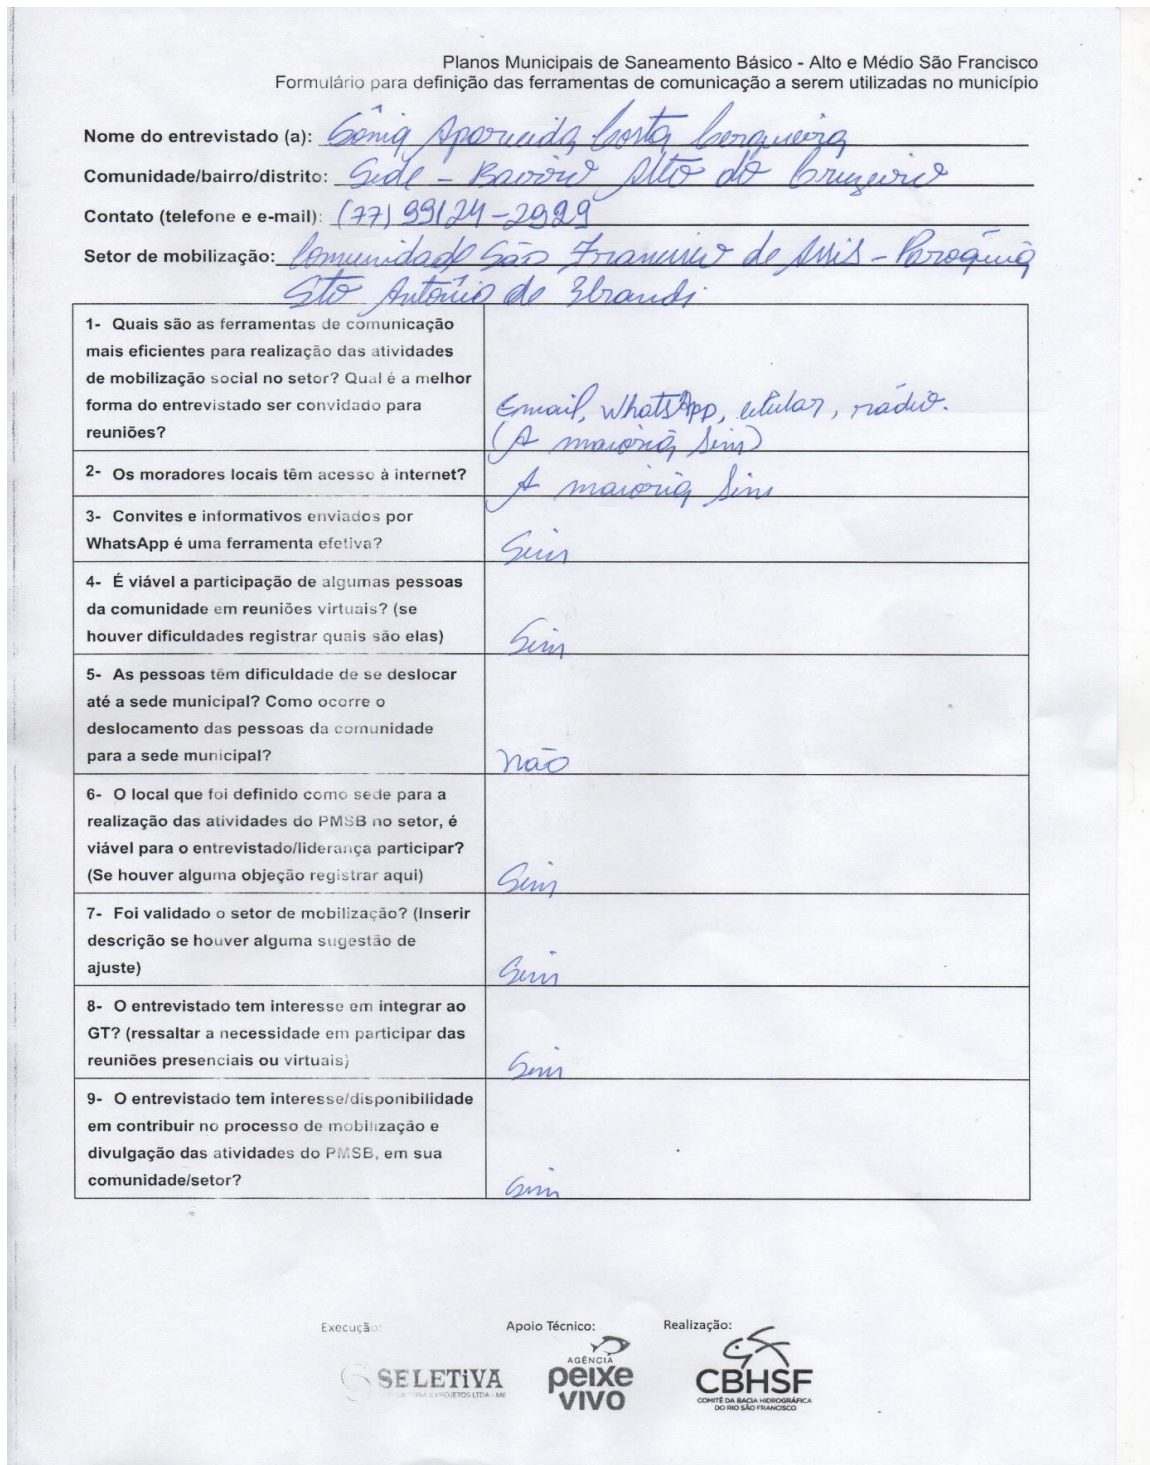 Planos Municipais de Saneamento Básico - Alto e Médio São Francisco
Formulário para definição das ferramentas de comunicação a serem utilizadas no município
Nome do entrevistado (a): Sônia Aparecida Costa Cerqueira
Comunidade/bairro/distrito: Sede - Bairro Alto do Cruzeiro
Contato (telefone e e-mail): (77) 99124-2929
Setor de mobilização: Comunidade São Francisco de Assis - Paróquia
Sto Antônio de
1- Quais são as ferramentas de comunicação
mais eficientes para realização das atividades
de mobilização social no setor? Qual é a melhor
forma do entrevistado ser convidado para
reuniões?
Email, WhatsApp, celular, rádio.
(A maioria sim)
2- Os moradores locais têm acesso à internet?
A maioria sim
3- Convites e informativos enviados por
WhatsApp é uma ferramenta efetiva?
Sim
4- É viável a participação de algumas pessoas
da comunidade em reuniões virtuais? (se
houver dificuldades registrar quais são elas)
Sim
5- As pessoas têm dificuldade de se deslocar
até a sede municipal? Como ocorre o
deslocamento das pessoas da comunidade
para a sede municipal?
não
6- O local que foi definido como sede para a
realização das atividades do PMSB no setor, é
viável para o entrevistado/liderança participar?
(Se houver alguma objeção registrar aqui)
Sim
7- Foi validado o setor de mobilização? (Inserir
descrição se houver alguma sugestão de
ajuste)
Sim
8- O entrevistado tem interesse em integrar ao
GT? (ressaltar a necessidade em participar das
reuniões presenciais ou virtuais)
Sim
9- O entrevistado tem interesse/disponibilidade
em contribuir no processo de mobilização e
divulgação das atividades do PMSB, em sua
comunidade/setor?
Sim
Execução:
Apoio Técnico:
Realização:
SELETiVA
PROJETOS LTDA - ME
AGÊNCIA
peixe
vivo
CBHSF
COMITÊ DA BACIA HIDROGRÁFICA
DO RIO SÃO FRANCISCO